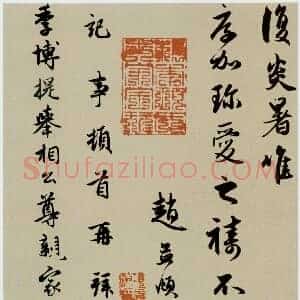 復炎暑唯
厚加珍愛之禱不
趙孟頫
記事頓首再拜
季博提舉相公尊親家
Shufaziliao.com